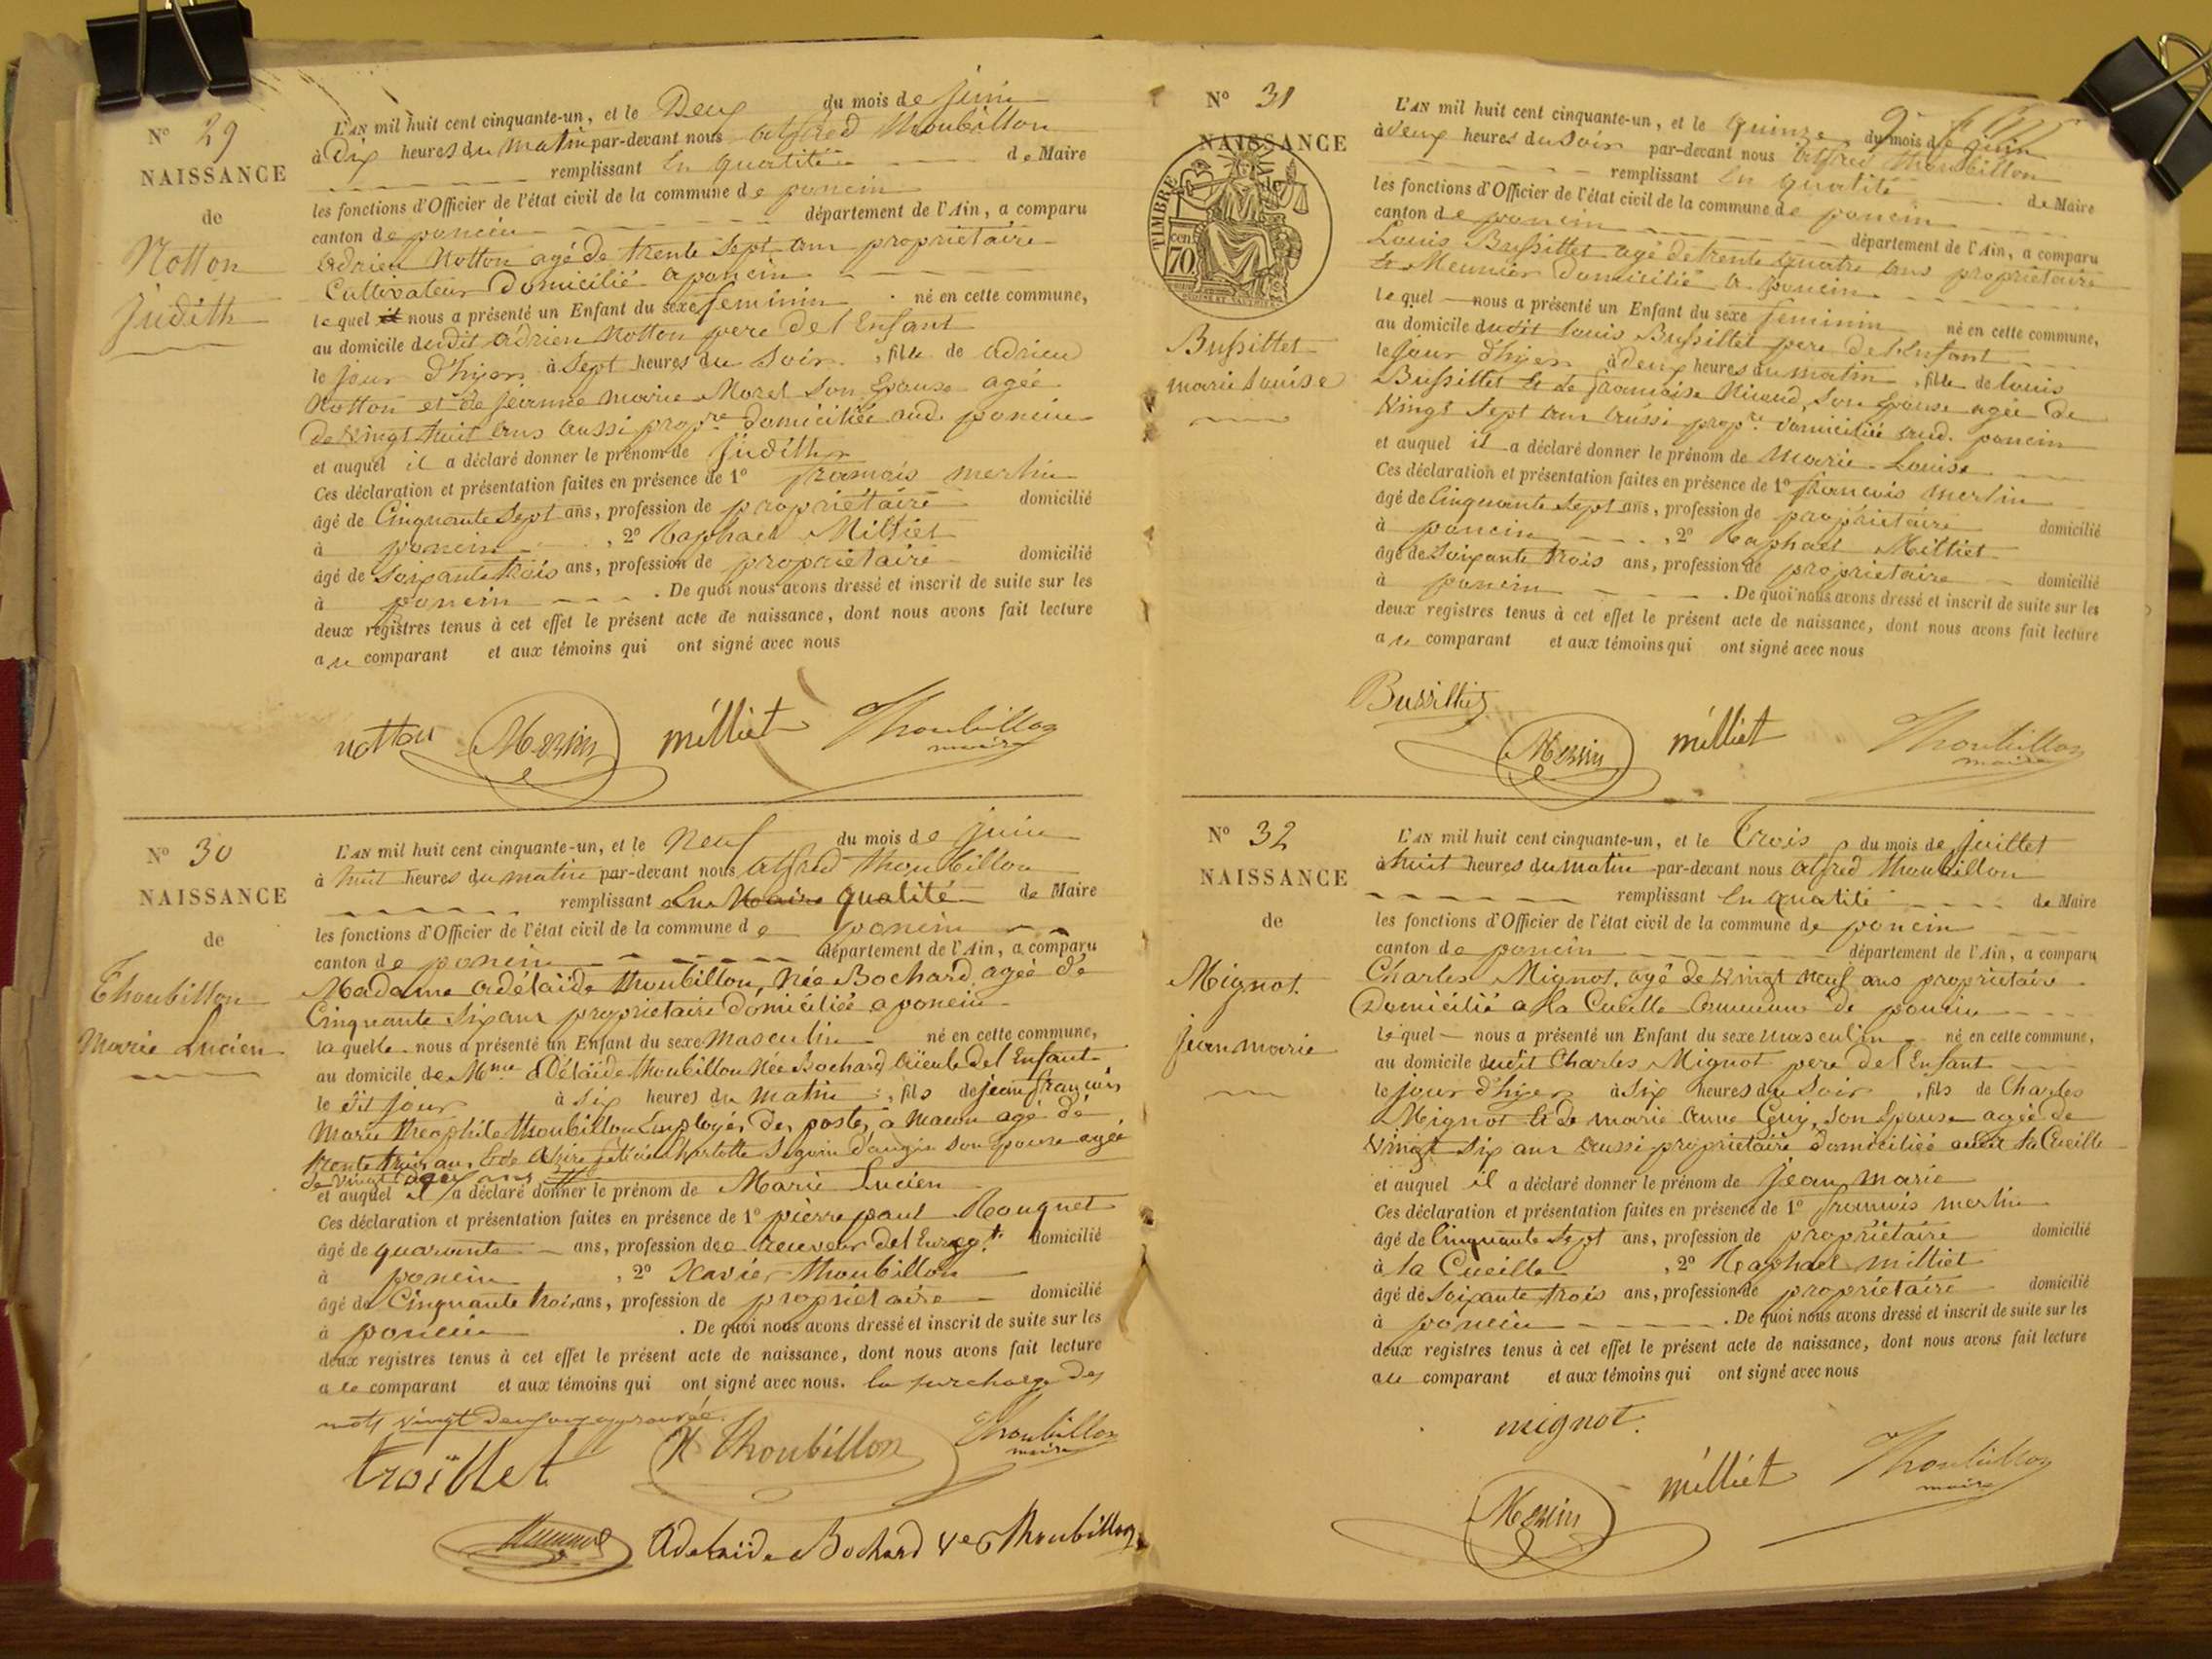 N° 29
NAISSANCE
de
Notton
Judith
L'AN mil huit cent cinquante-un, et le Deux du mois de juin
à Dix heures du matin par-devant nous alfred thoubillon
remplissant En qualité de Maire
les fonctions d'Officier de l'état civil de la commune de poncin
canton de poncin département de l'Ain, a comparu
adrien Notton agé de trente sept ans propriétaire
Cultivateur Domicilié a poncin
lequel nous a présenté un Enfant du sexe feminin né en cette commune,
au domicile dudit adrien Notton pere de l'Enfant
le jour d'hyer à sept heures du soir, fille de adrien
Notton et de jeanne marie Morel son Epouse agée
de vingt huit ans aussi prop.re domiciliée aud. poncin
et auquel il a déclaré donner le prénom de judith
Ces déclaration et présentation faites en présence de 1° francois merlin
âgé de Cinquante sept ans, profession de propriétaire domicilié
à poncin, 2° Raphael Milliet
âgé de soixante trois ans, profession de propriétaire domicilié
à poncin. De quoi nous avons dressé et inscrit de suite sur les
deux registres tenus à cet effet le présent acte de naissance, dont nous avons fait lecture
au comparant et aux témoins qui ont signé avec nous
notton Merlin milliet Thoubillon
maire
N° 30
NAISSANCE
de
Thoubillon
Marie Lucien
L'AN mil huit cent cinquante-un, et le Neuf du mois de juin
à huit heures du matin par-devant nous alfred thoubillon
remplissant En Maire qualité de Maire
les fonctions d'Officier de l'état civil de la commune de poncin
canton de poncin département de l'Ain, a comparu
Madame adélaïde thoubillon, Née Bochard agée de
Cinquante six ans propriétaire domiciliée a poncin
laquelle nous a présenté un Enfant du sexe masculin né en cette commune,
au domicile de Mme adélaïde thoubillon Née Bochard aïeule de l'Enfant
le dit jour à six heures du matin, fils de jean françois
Marie théophile thoubillon Employé des postes a macon agé de
trente trois ans et de félicie Charlotte son Epouse agée
de vingt deux ans
et auquel il a déclaré donner le prénom de Marie Lucien
Ces déclaration et présentation faites en présence de 1° pierre paul Rouquet
âgé de quarante ans, profession de receveur de l'Enregt. domicilié
à poncin, 2° Xavier thoubillon
âgé de Cinquante trois ans, profession de propriétaire domicilié
à poncin. De quoi nous avons dressé et inscrit de suite sur les
deux registres tenus à cet effet le présent acte de naissance, dont nous avons fait lecture
a le comparant et aux témoins qui ont signé avec nous. la surcharge des
mots vingt deux ans approuvée.
X Thoubillon Thoubillon
maire
adelaïde Bochard Ve Thoubillon
N° 31
NAISSANCE
de
TIMBRE
70 cent
Bussillet
marie Louise
L'AN mil huit cent cinquante-un, et le quinze du mois de juin
à deux heures du soir par-devant nous alfred thoubillon
remplissant En qualité de Maire
les fonctions d'Officier de l'état civil de la commune de poncin
canton de poncin département de l'Ain, a comparu
Louis Bussillet agé de trente quatre ans propriétaire
et Meunier Domicilié a poncin
lequel nous a présenté un Enfant du sexe feminin né en cette commune,
au domicile dudit louis Bussillet pere de l'Enfant
le jour d'hyer à deux heures du matin, fille de louis
Bussillet et de françoise Nicaud, son Epouse agée de
Vingt sept ans aussi prop.re domiciliée aud. poncin
et auquel il a déclaré donner le prénom de Marie Louise
Ces déclaration et présentation faites en présence de 1° francois merlin
âgé de Cinquante sept ans, profession de propriétaire domicilié
à poncin, 2° Raphael Milliet
âgé de soixante trois ans, profession de propriétaire domicilié
à poncin. De quoi nous avons dressé et inscrit de suite sur les
deux registres tenus à cet effet le présent acte de naissance, dont nous avons fait lecture
au comparant et aux témoins qui ont signé avec nous
Bussillet
Merlin milliet Thoubillon
maire
N° 32
NAISSANCE
de
Mignot.
jean marie
L'AN mil huit cent cinquante-un, et le Trois du mois de juillet
à huit heures du matin par-devant nous alfred thoubillon
remplissant En qualité de Maire
les fonctions d'Officier de l'état civil de la commune de poncin
canton de poncin département de l'Ain, a comparu
Charles Mignot, agé de vingt neuf ans propriétaire
Domicilié a la Cueille Commune de poncin
lequel nous a présenté un Enfant du sexe masculin né en cette commune,
au domicile dudit Charles Mignot pere de l'Enfant
le jour d'hyer à six heures du soir, fils de Charles
Mignot et de marie anne Guy, son Epouse agée de
vingt six ans aussi propriétaire domiciliée audit la Cueille
et auquel il a déclaré donner le prénom de jean marie
Ces déclaration et présentation faites en présence de 1° francois merlin
âgé de Cinquante sept ans, profession de propriétaire domicilié
à la Cueille, 2° Raphael milliet
âgé de soixante trois ans, profession de propriétaire domicilié
à poncin. De quoi nous avons dressé et inscrit de suite sur les
deux registres tenus à cet effet le présent acte de naissance, dont nous avons fait lecture
au comparant et aux témoins qui ont signé avec nous
mignot.
Merlin milliet Thoubillon
maire